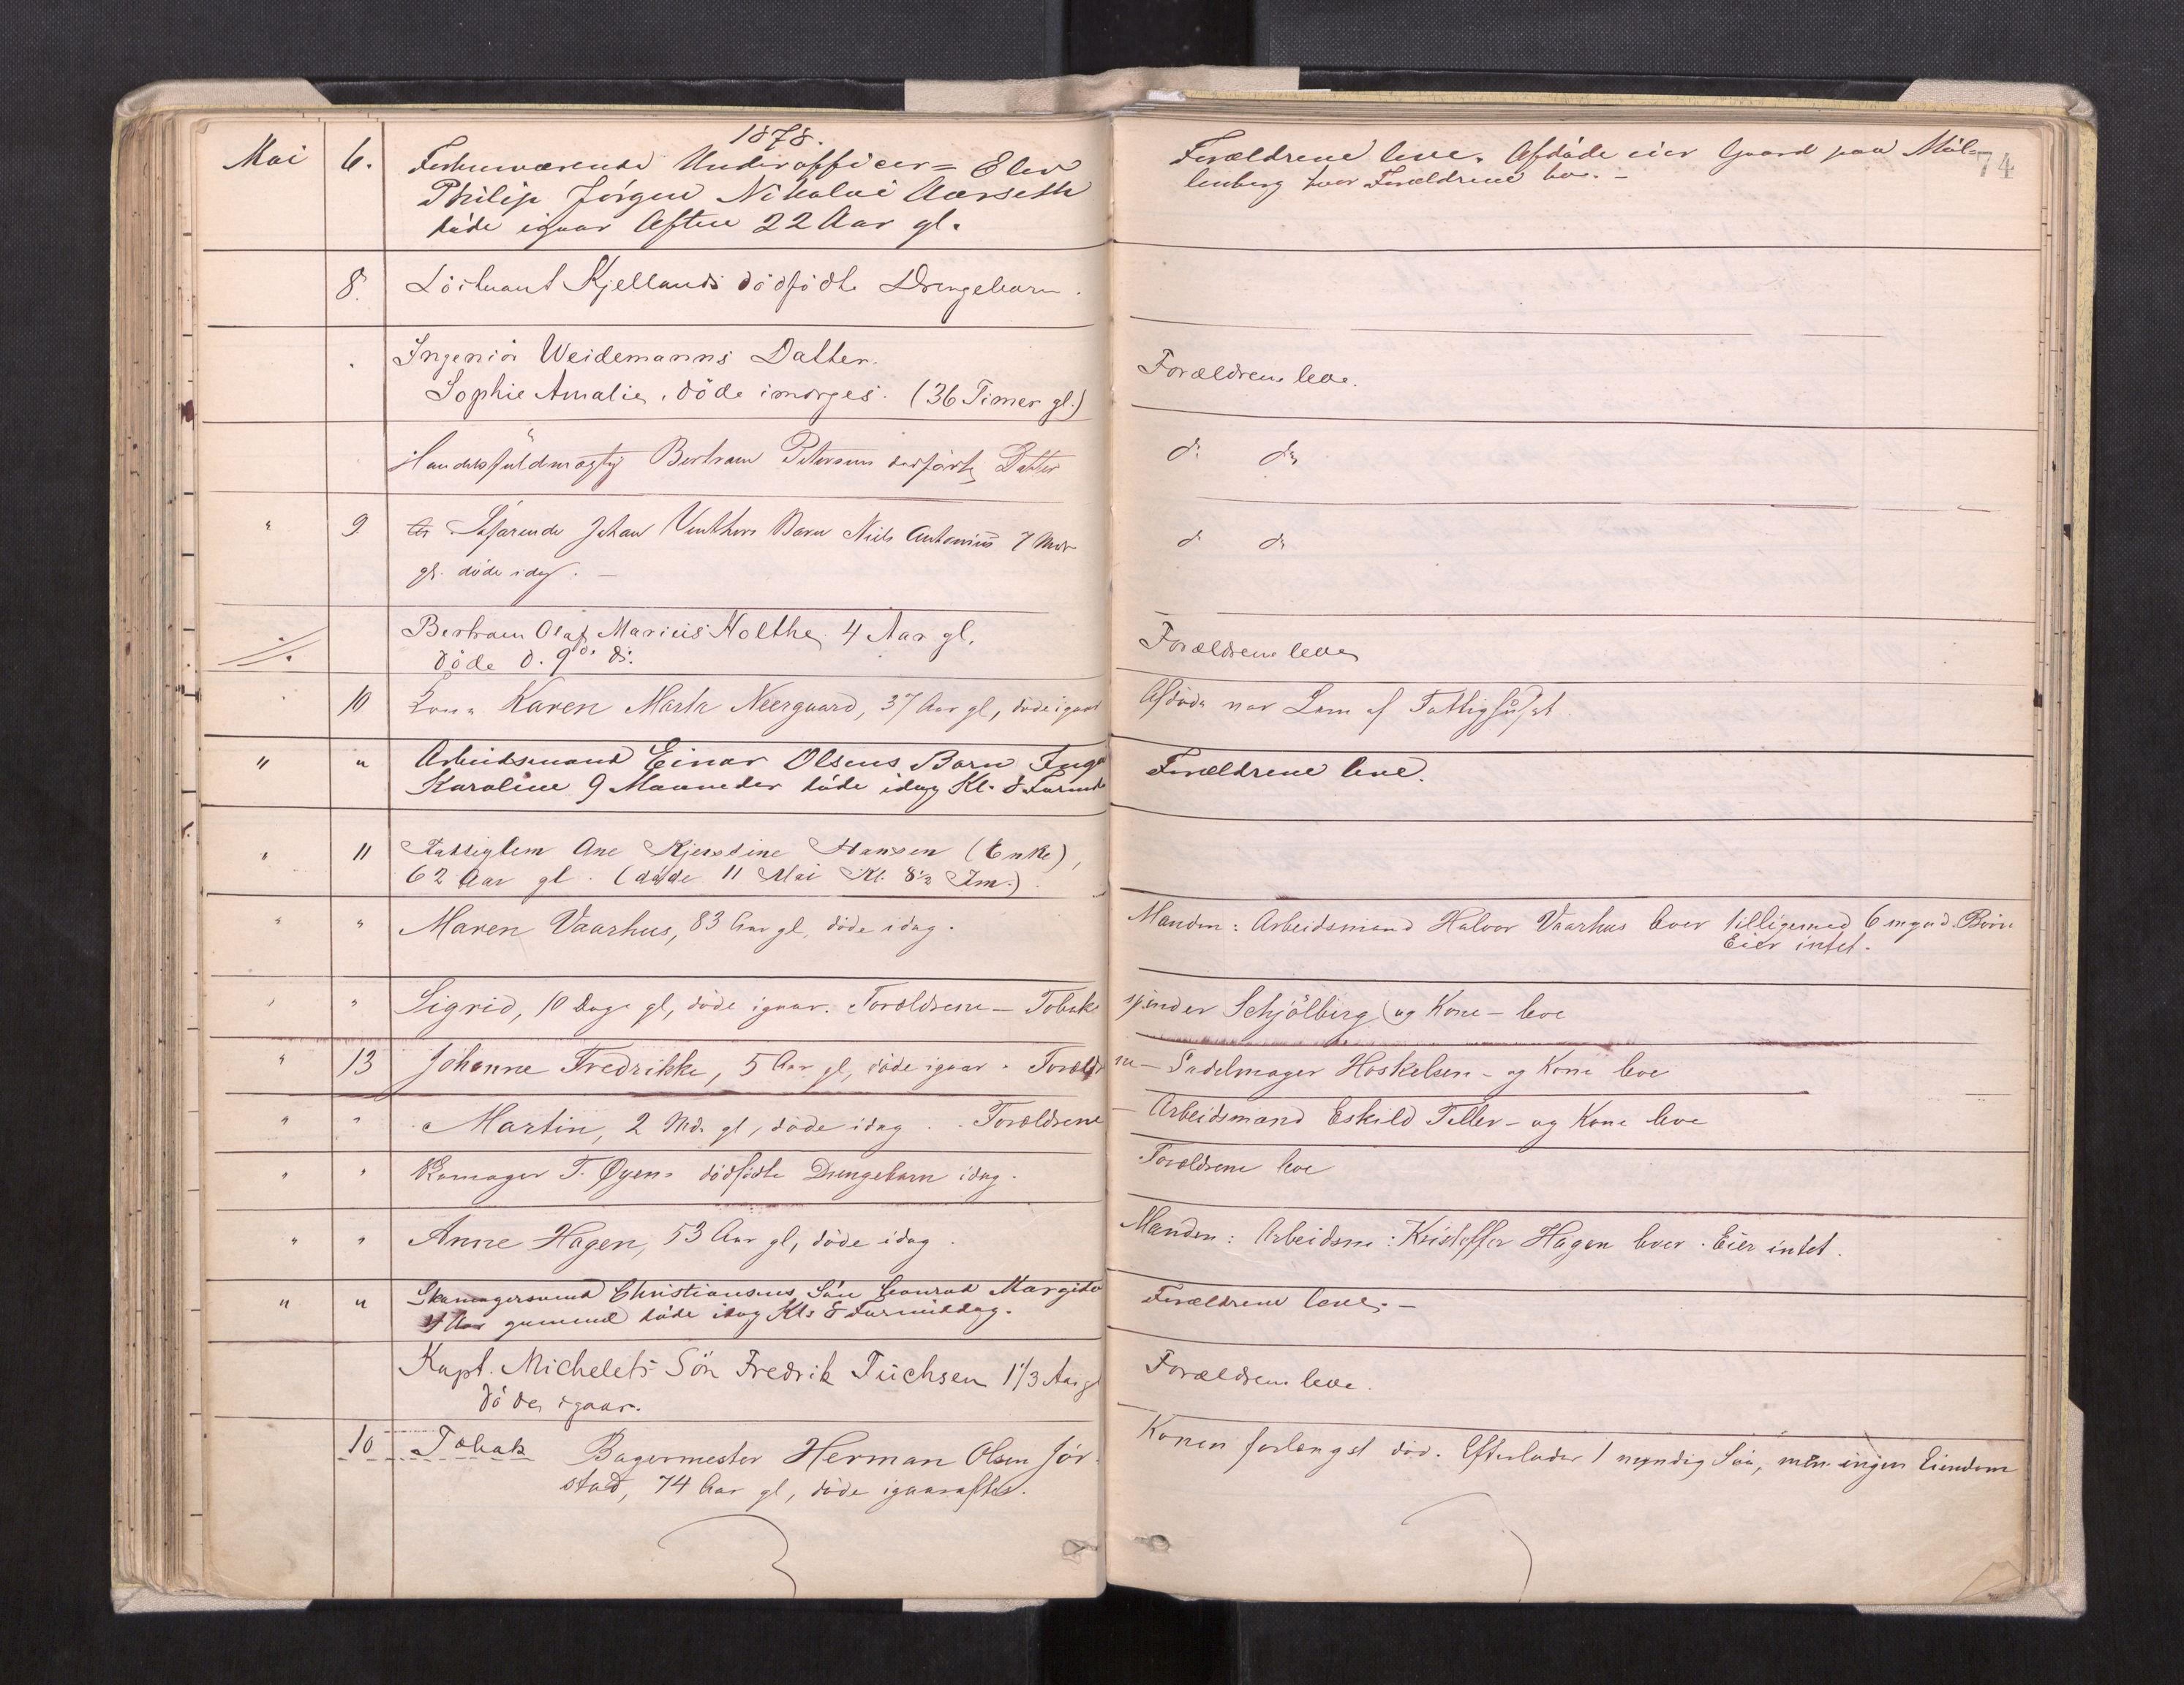 1878.
Mai 6. Forhenværende Underofficer= Elev
Philip Jörgen Nikolai Aarseth
døde igaar Aften 22 Aar gl.
Forældrene leve. Afdøde eier Gaard paa Möl=
lenberg hvor Forældrene bo. –
74
8. Löitnant Kjellands dödfödte Drengebarn.
Ingeniör Weidemanns Datter.
Sophie Amalie, döde imorges. (36 Timer gl.)
Forældrene leve.
Handelsfuldmægtig Bertram Petersens dødfødte Datter
do do
" 9. Johan Barn Niels Antonius 7 Mdr
gl. døde idag. –
do do
Bertram Olaf Marius Holthe, 4 Aar gl.
döde d. 9de ds.
Forældrene leve
10 Karen Marta Neergaard, 37 Aar gl, døde igaar
Afdøde var Lem af Fattighuset
" " Arbeidsmand Einar Olsens Barn Inga
Karoline 9 Maaneder døde idag Kl. 8 Formd
Forældrene leve.
" 11 Fattiglem Ane Kjerstine Hansen (Enke),
62 Aar gl. (døde 11 Mai Kl. 8½ Fm.).
" " Maren Vaarhus, 83 Aar gl, døde idag.
Manden: Arbeidsmand Halvor Vaarhus lever tilligemed 6 mynd. Börn
Eier intet.
" " Sigrid, 10 Dage gl, døde igaar. Forældrene – Tobak
spinder Schjölberg og Kone – leve
" 13 Johanne Fredrikke, 5 Aar gl, døde igaar. Forældre
ne – Sadelmager Hoskelsen – og Kone leve
" " Martin, 2 Md. gl, døde idag. Forældrene
– Arbeidsmand Eskild Tiller – og Kone leve
" " T. Øyens dödfödte Drengebarn idag.
Forældrene leve
" " Anne Hagen, 53 Aar gl, døde idag.
Manden: Arbeidsm: Kristoffer Hagen lever. Eier intet.
" " Skomagersvend Christiansens Sön Conrad Margido
4 Aar gammel døde idag Kl. 8 Formiddag.
Forældrene leve. –
Kapt. Michelets Sön Fredrik Tüchsen 1⅓ Aar gl
döde igaar.
Forældrene leve.
10 Tobak Bagermester Herman Olsen Jör
stad, 74 Aar gl, døde igaaraftes.
Konen forlængst död. Efterlader 1 myndig Sön, men ingen Eiendom